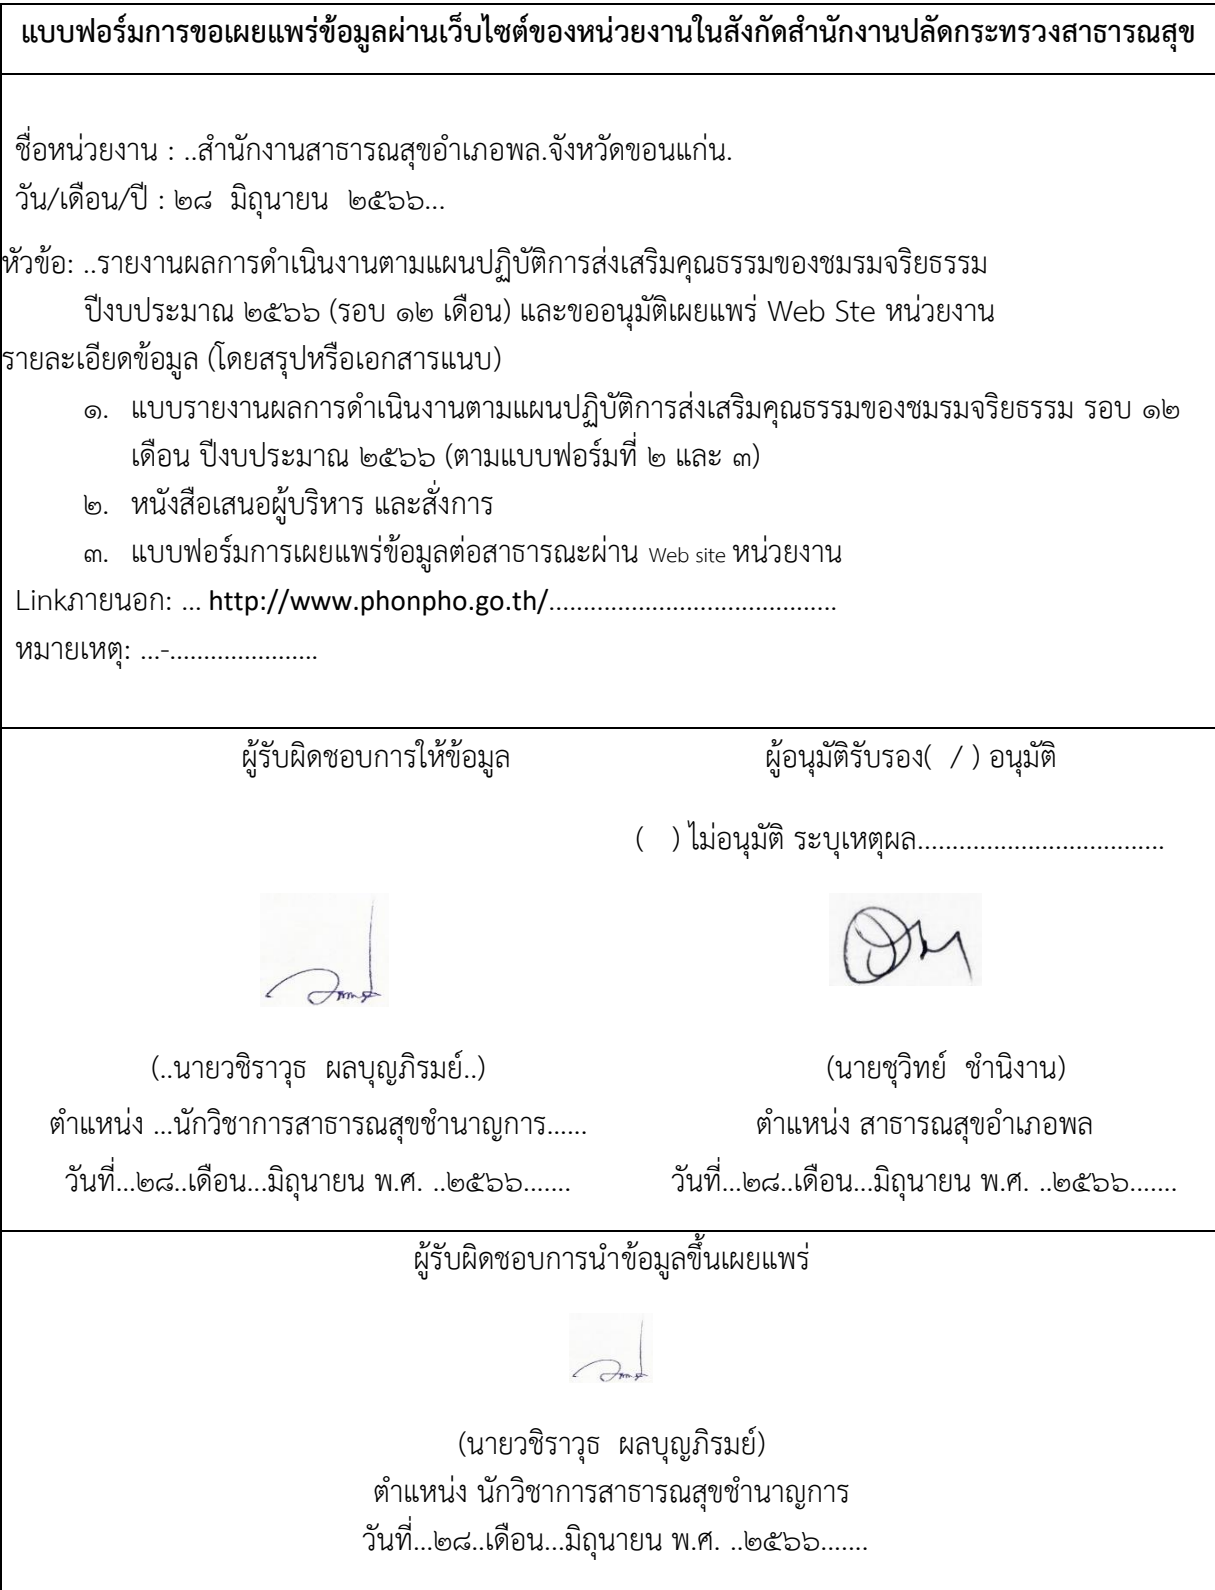 แบบฟอร์มการขอเผยแพร่ข้อมูลผ่านเว็บไซต์ของหน่วยงานในสังกัดสำนักงานปลัดกระทรวงสาธารณสุข
ชื่อหน่วยงาน : ..สำนักงานสาธารณสุขอำเภอพล.จังหวัดขอนแก่น.
วัน/เดือน/ปี : ๒๘ มิถุนายน ๒๕๖๖...
หัวข้อ: ..รายงานผลการดำเนินงานตามแผนปฏิบัติการส่งเสริมคุณธรรมของชมรมจริยธรรม
ปีงบประมาณ ๒๕๖๖ (รอบ ๑๒ เดือน) และขออนุมัติเผยแพร่ Web Ste หน่วยงาน
รายละเอียดข้อมูล (โดยสรุปหรือเอกสารแนบ)
๑. แบบรายงานผลการดำเนินงานตามแผนปฏิบัติการส่งเสริมคุณธรรมของชมรมจริยธรรม รอบ ๑๒
เดือน ปีงบประมาณ ๒๕๖๖ (ตามแบบฟอร์มที่ ๒ และ ๓)
๒. หนังสือเสนอผู้บริหาร และสั่งการ
๓. แบบฟอร์มการเผยแพร่ข้อมูลต่อสาธารณะผ่าน Web site หน่วยงาน
Linkภายนอก: ... http://www.phonpho.go.th/..........................................
หมายเหตุ: ...-......................
ผู้รับผิดชอบการให้ข้อมูล ผู้อนุมัติรับรอง( / ) อนุมัติ
( ) ไม่อนุมัติ ระบุเหตุผล....................................
(..นายวชิราวุธ ผลบุญภิรมย์..) (นายชุวิทย์ ชำนิงาน)
ตำแหน่ง ...นักวิชาการสาธารณสุขชำนาญการ...... ตำแหน่ง สาธารณสุขอำเภอพล
วันที่...๒๘..เดือน...มิถุนายน พ.ศ. ..๒๕๖๖....... วันที่...๒๘..เดือน...มิถุนายน พ.ศ. ..๒๕๖๖.......
ผู้รับผิดชอบการนำข้อมูลขึ้นเผยแพร่
(นายวชิราวุธ ผลบุญภิรมย์)
ตำแหน่ง นักวิชาการสาธารณสุขชำนาญการ
วันที่...๒๘..เดือน...มิถุนายน พ.ศ. ..๒๕๖๖.......